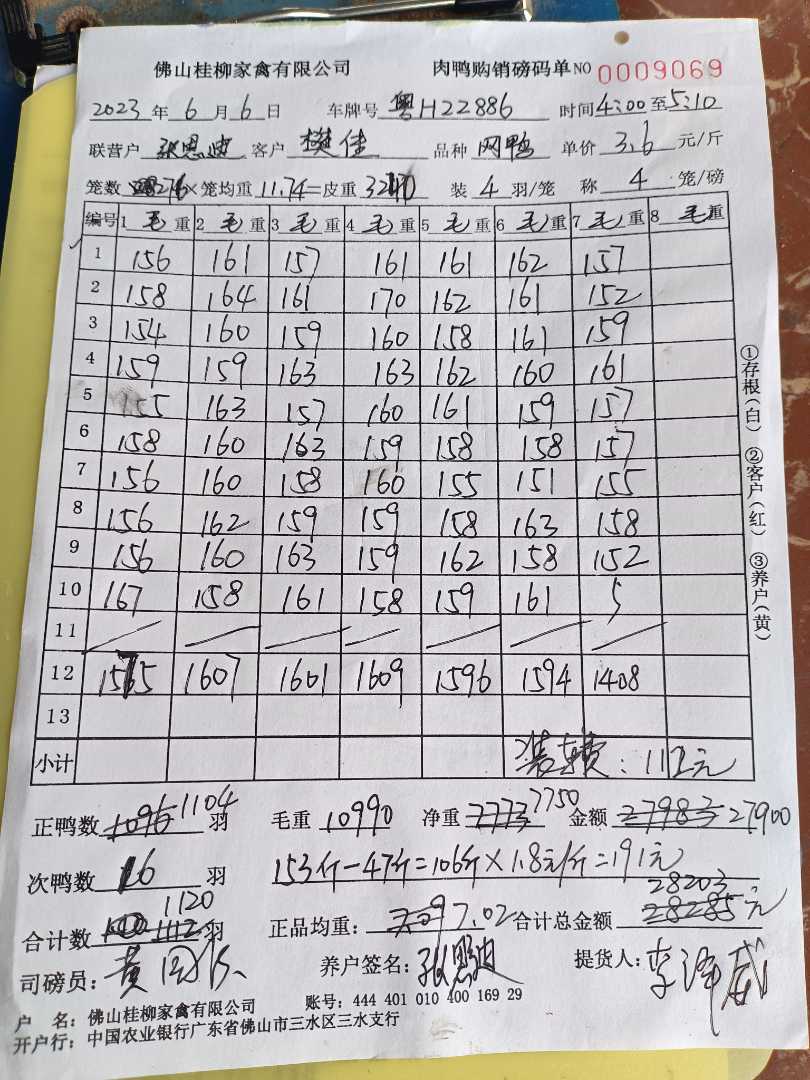 佛山桂柳家禽有限公司 肉鸭购销磅码单 NO 0009069
2023 年 6 月 6 日 车牌号 粤H22886 时间 4:00 至 5:10
联营户 张思迪 客户 樊佳 品种 网鸭 单价 3.6 元/斤
笼数 276 ×笼均重 11.74 =皮重 3240 装 4 羽/笼 称 4 笼/磅
编号 1 毛 重 2 毛 重 3 毛 重 4 毛 重 5 毛 重 6 毛 重 7 毛 重 8 毛 重
1 156 161 157 161 161 162 157
2 158 164 161 170 162 161 152
3 154 160 159 160 158 161 159
4 159 159 163 163 162 160 161
5 155 163 157 160 161 159 157
6 158 160 163 159 158 158 157
7 156 160 158 160 155 151 155
8 156 162 159 159 158 163 158
9 156 160 163 159 162 158 152
10 167 158 161 158 159 161 5
11
12 1575 1607 1601 1609 1596 1594 1408
13
小计 装车费：112元
正鸭数 1096 1104 羽 毛重 10990 净重 7773 7750 金额 27983 27900
次鸭数 16 羽 153斤-47斤=106斤×1.8元/斤=191元
合计数 1112 1120 羽 正品均重： 7.02 合计总金额 28285 28203 元
司磅员： 黄 养户签名： 张思迪 提货人： 李泽威
户 名：佛山桂柳家禽有限公司 账号：444 401 010 400 169 29
开户行：中国农业银行广东省佛山市三水区三水支行
①存根(白) ②客户(红) ③养户(黄)